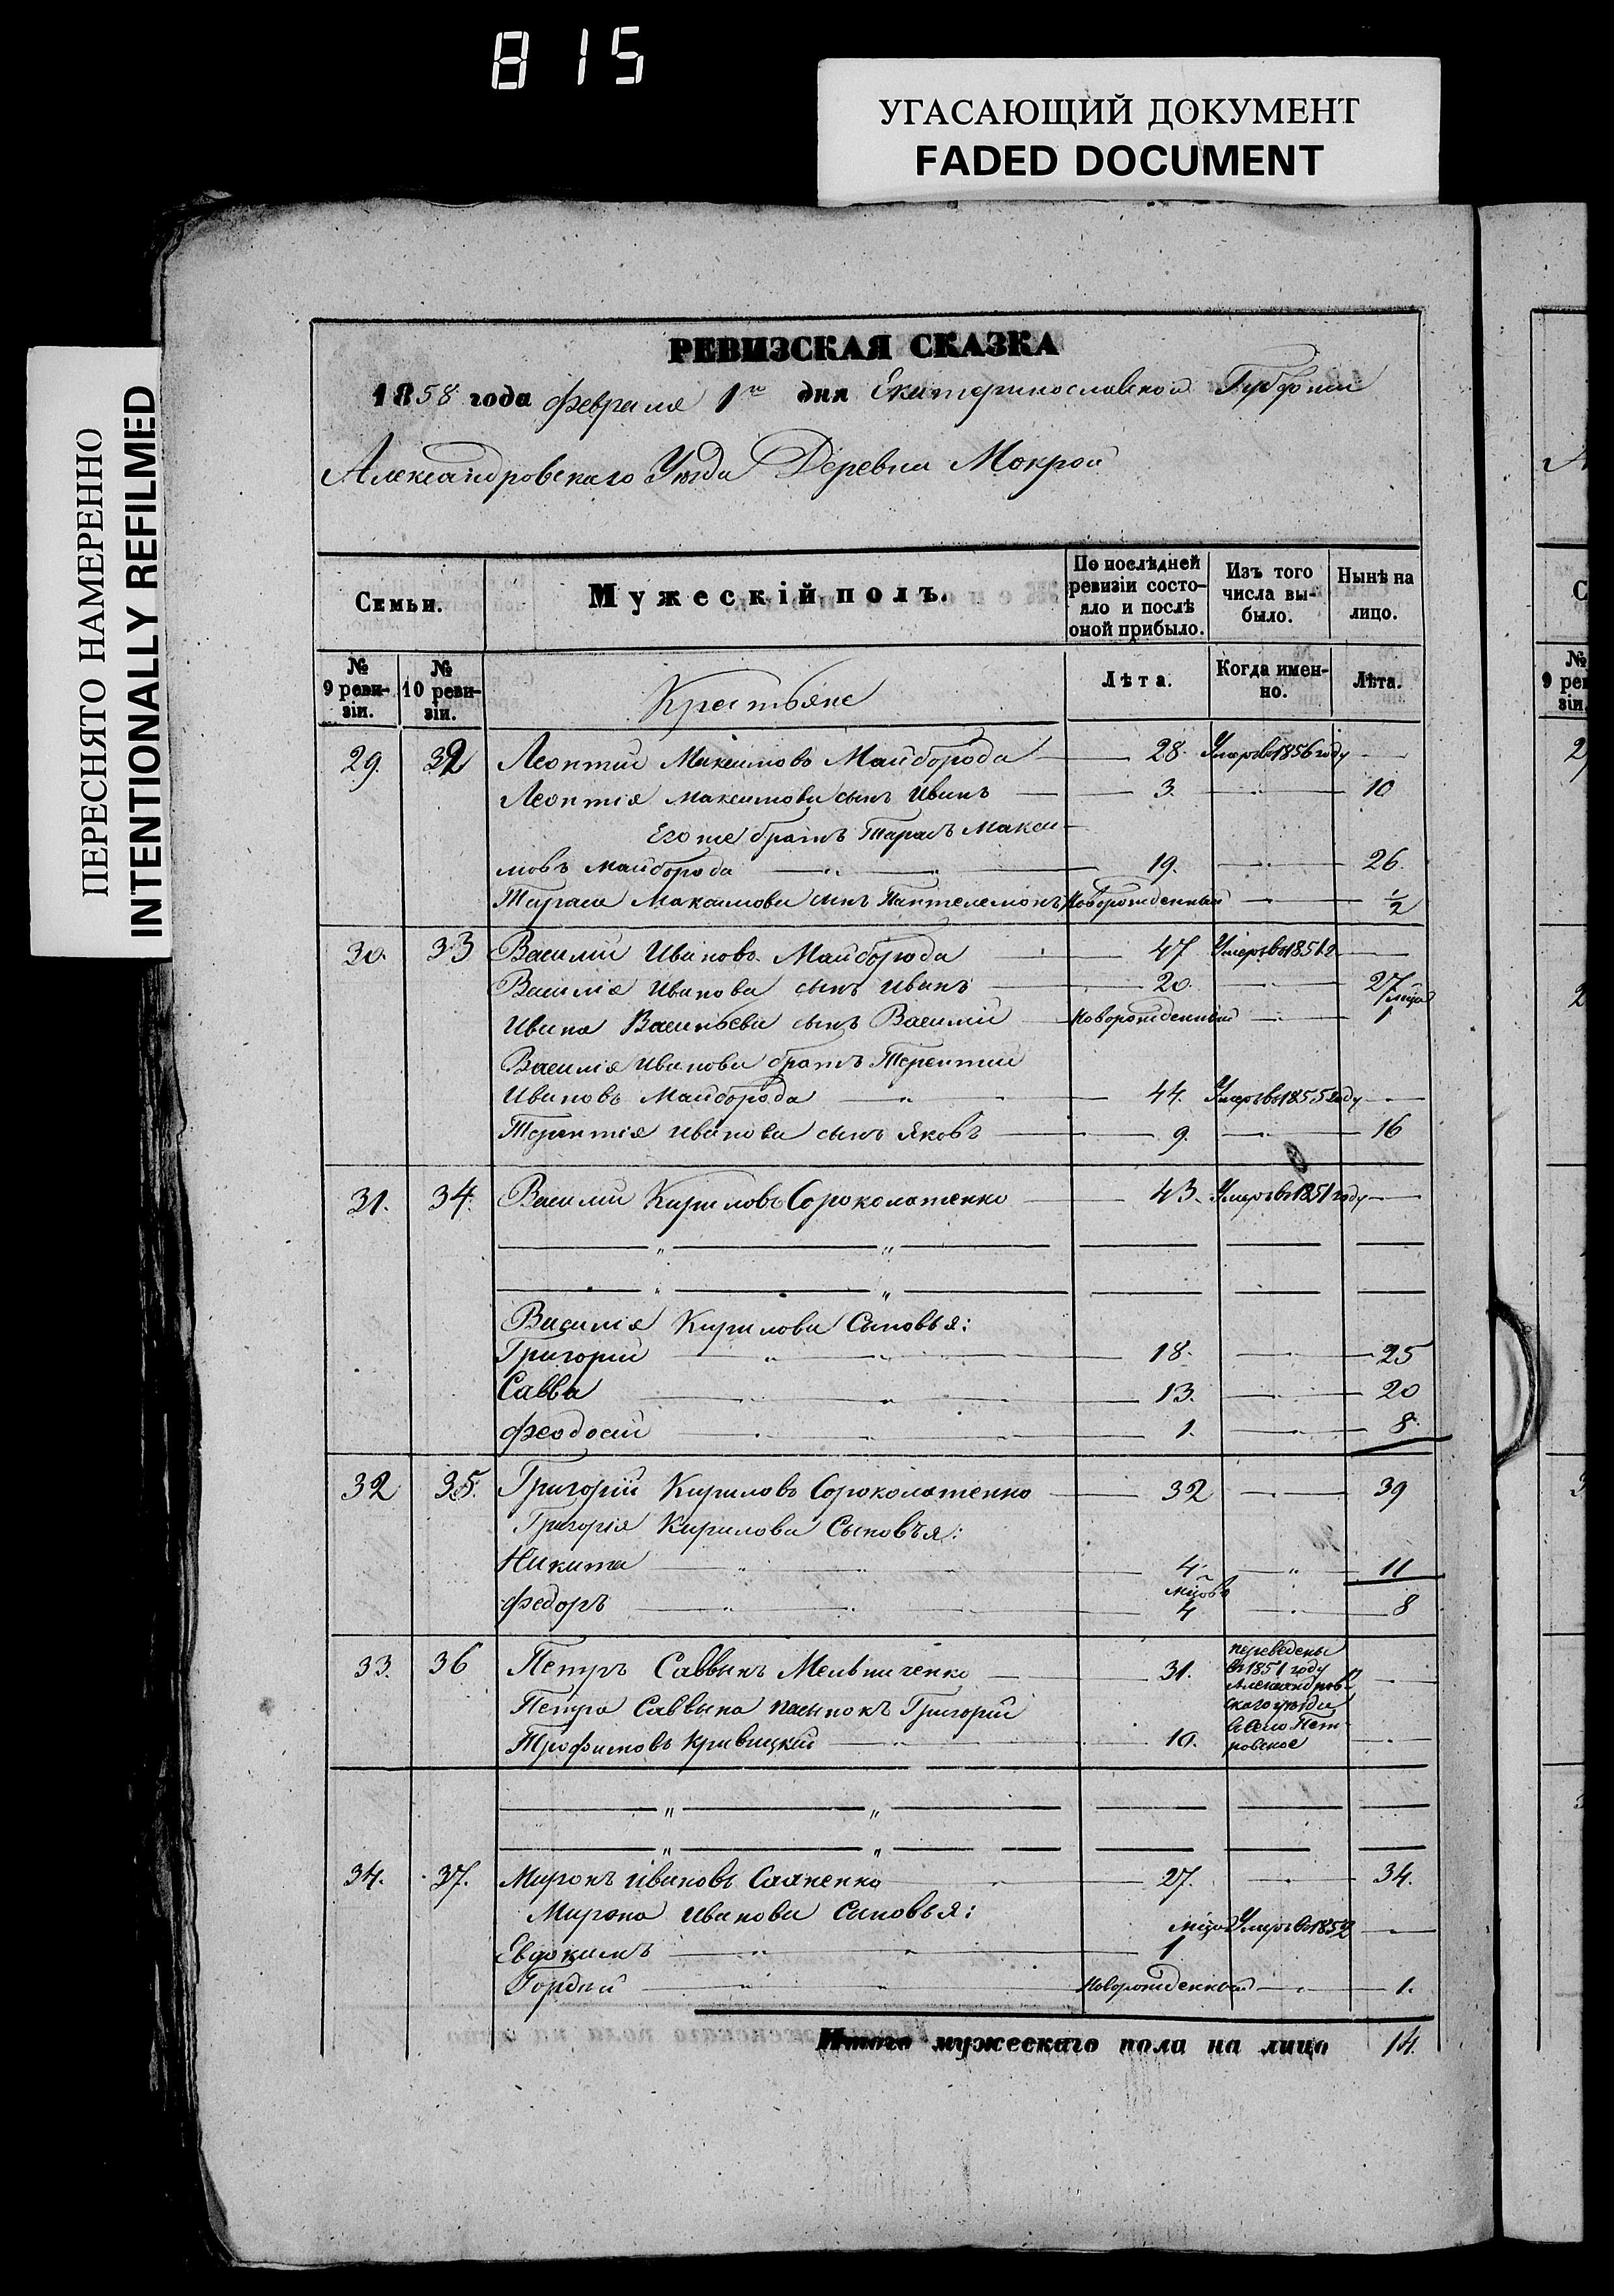 815
УГАСАЮЩИЙ ДОКУМЕНТ
FADED DOCUMENT
ПЕРЕСНЯТО НАМЕРЕННО
INTENTIONALLY REFILMED
РЕВИЗСКАЯ СКАЗКА
1858 года Февраля 1го дня Екатеринославской Губернии
Александровскаго Уѣзда Деревни Мокрой
Семьи. Мужескій полъ. По послѣдней ревизіи состояло и послѣ оной прибыло. Изъ того числа выбыло. Нынѣ на лицо.
№ 9 ревизіи. № 10 ревизіи. Крестьяне Лѣта. Когда именно. Лѣта.
29. 32 Леонтий Максимовъ Майборода 28. Умеръ въ 1856 году
Леонтія Максимова сынъ Иванъ 3. 10
Его же братъ Тарасъ Макси-
мовъ Майборода 19. 26.
Тараса Максимова сынъ Пантелемонъ Новорожденный 1/2
30. 33 Василий Ивановъ Майборода 47 Умеръ въ 1851 г
Василія Иванова сынъ Иванъ 20. 27
Ивана Васильева сынъ Василий Новорожденный 1 мѣсяц
Василія Иванова братъ Терентий
Ивановъ Майборода 44. Умеръ въ 1855 году
Терентія Иванова сынъ Яковъ 9. 16
31. 34. Василий Кириловъ Сороколатенко 43. Умеръ въ 1851 году
Василія Кирилова Сыновья:
Григорий 18. 25
Савва 13. 20
Феодосий 1. 8.
32 35. Григорій Кириловъ Сороколатенко 32 39
Григорія Кирилова Сыновъя:
Никита 4. 11
Федоръ 4 мцовъ 8
33. 36 Петръ Саввинъ Мельниченко 31. переведены
въ 1851 году
Александров-
скаго уѣзда
в село Пет-
ровское
Петра Саввина пасынокъ Григорій
Трофимовъ Кривицкій 10.
34. 37. Миронъ Ивановъ 27. 34.
Мирона Иванова Сыновья:
Евдокимъ 1 мцъ Умеръ въ 1852
Гордѣй Новорожденный 1.
Итого мужескаго пола на лицо 14.